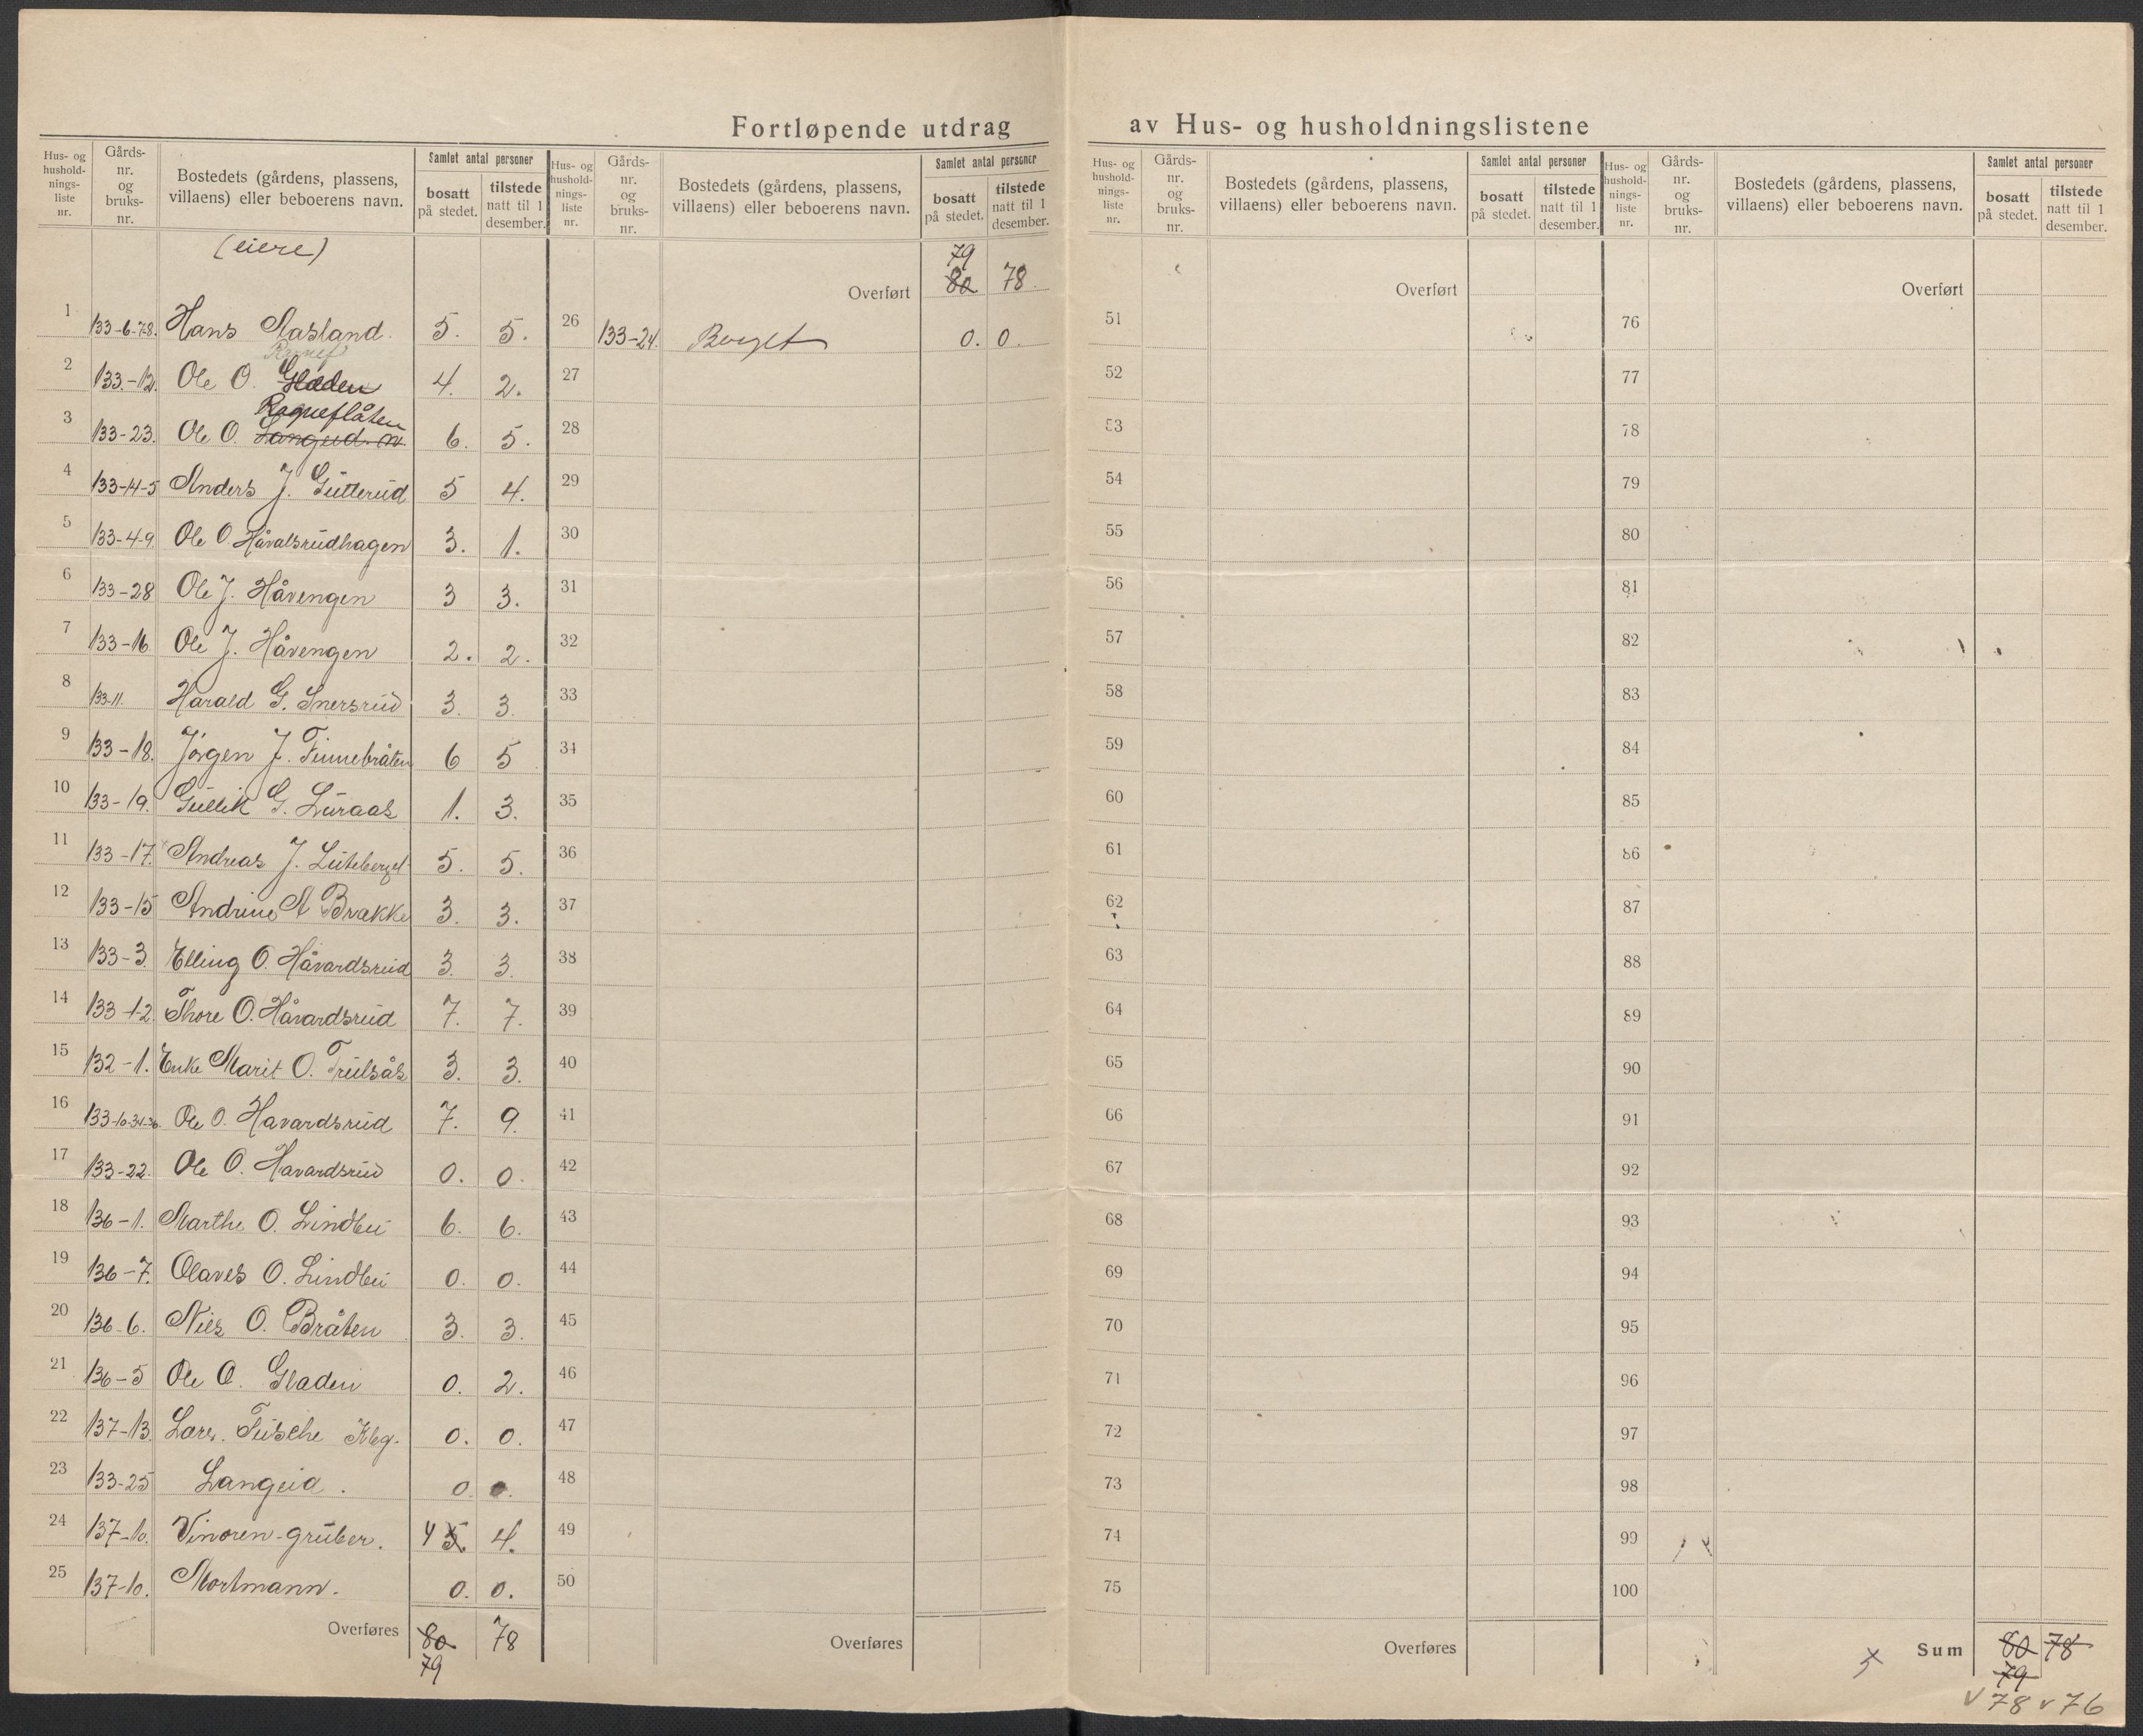 Fortløpende utdrag av Hus- og husholdningslistene
Hus- og hushold-nings-liste nr. Gårds-nr. og bruks-nr. Bostedets (gårdens, plassens, villaens) eller beboerens navn. Samlet antal personer bosatt på stedet. tilstede natt til 1 desember.
Hus- og hushold-nings-liste nr. Gårds-nr. og bruks-nr. Bostedets (gårdens, plassens, villaens) eller beboerens navn. Samlet antal personer bosatt på stedet. tilstede natt til 1 desember.
Hus- og hushold-nings-liste nr. Gårds-nr. og bruks-nr. Bostedets (gårdens, plassens, villaens) eller beboerens navn. Samlet antal personer bosatt på stedet. tilstede natt til 1 desember.
Hus- og hushold-nings-liste nr. Gårds-nr. og bruks-nr. Bostedets (gårdens, plassens, villaens) eller beboerens navn. Samlet antal personer bosatt på stedet. tilstede natt til 1 desember.
(eiere)
1 133-6-7-8. Hans Aasland. 5. 5.
2 133.-12. Ole O. Gladen 4. 2.
Ragneflåten
3 133-23. Ole O. 6. 5.
4 133-14-5 Anders J. Gutterud 5 4.
5 133-4-9. Ole O. Håvalsrudhagen 3. 1.
6 133-28 Ole J. Håvengen 3 3.
7 133-16 Ole J. Håvengen 2. 2.
8 133-11. Harald G. Snersrud 3. 3.
9 133-18. Jörgen J. Finnebråten 6 5
10 133-19. Gullik G. Luraas 1. 3.
11 133-17. Andreas J. Luteberget 5. 5.
12 133-15 Andrine A Brække 3. 3.
13 133-3. Elling O. Håvardsrud 3. 3.
14 133-1-2. Thore O. Håvardsrud 7. 7.
15 132-1. Enke Marit O. Trulsås 3. 3.
16 Ole O. Havardsrud 7. 9.
17 133-22. Ole O. Havardsrud 0. 0.
18 136-1. Marthe O. Lindbu 6. 6.
19 136-7. Olaves O. Lindbu 0. 0.
20 136-6. Niels O. Bråten 3. 3.
21 136-5 Ole O. Gladen 0. 2.
22 137-13. 0. 0.
23 133-25 Langud. 0. 0.
24 137-10. Vinoren-gruber. 4 5. 4.
25 137-10. Mortmann. 0. 0.
Overføres 80 78
79
79
Overført 80 78
26 133-24. Berget 0. 0.
27
28
29
30
31
32
33
34
35
36
37
38
39
40
41
42
43
44
45
46
47
48
49
50
Overføres
Overført
51
52
53
54
55
56
57
58
59
60
61
62
63
64
65
66
67
68
69
70
71
72
73
74
75
Overføres
Overført
76
77
78
79
80
81
82
83
84
85
86
87
88
89
90
91
92
93
94
95
96
97
98
99
100
Sum 80 78
79
v 78 v 76